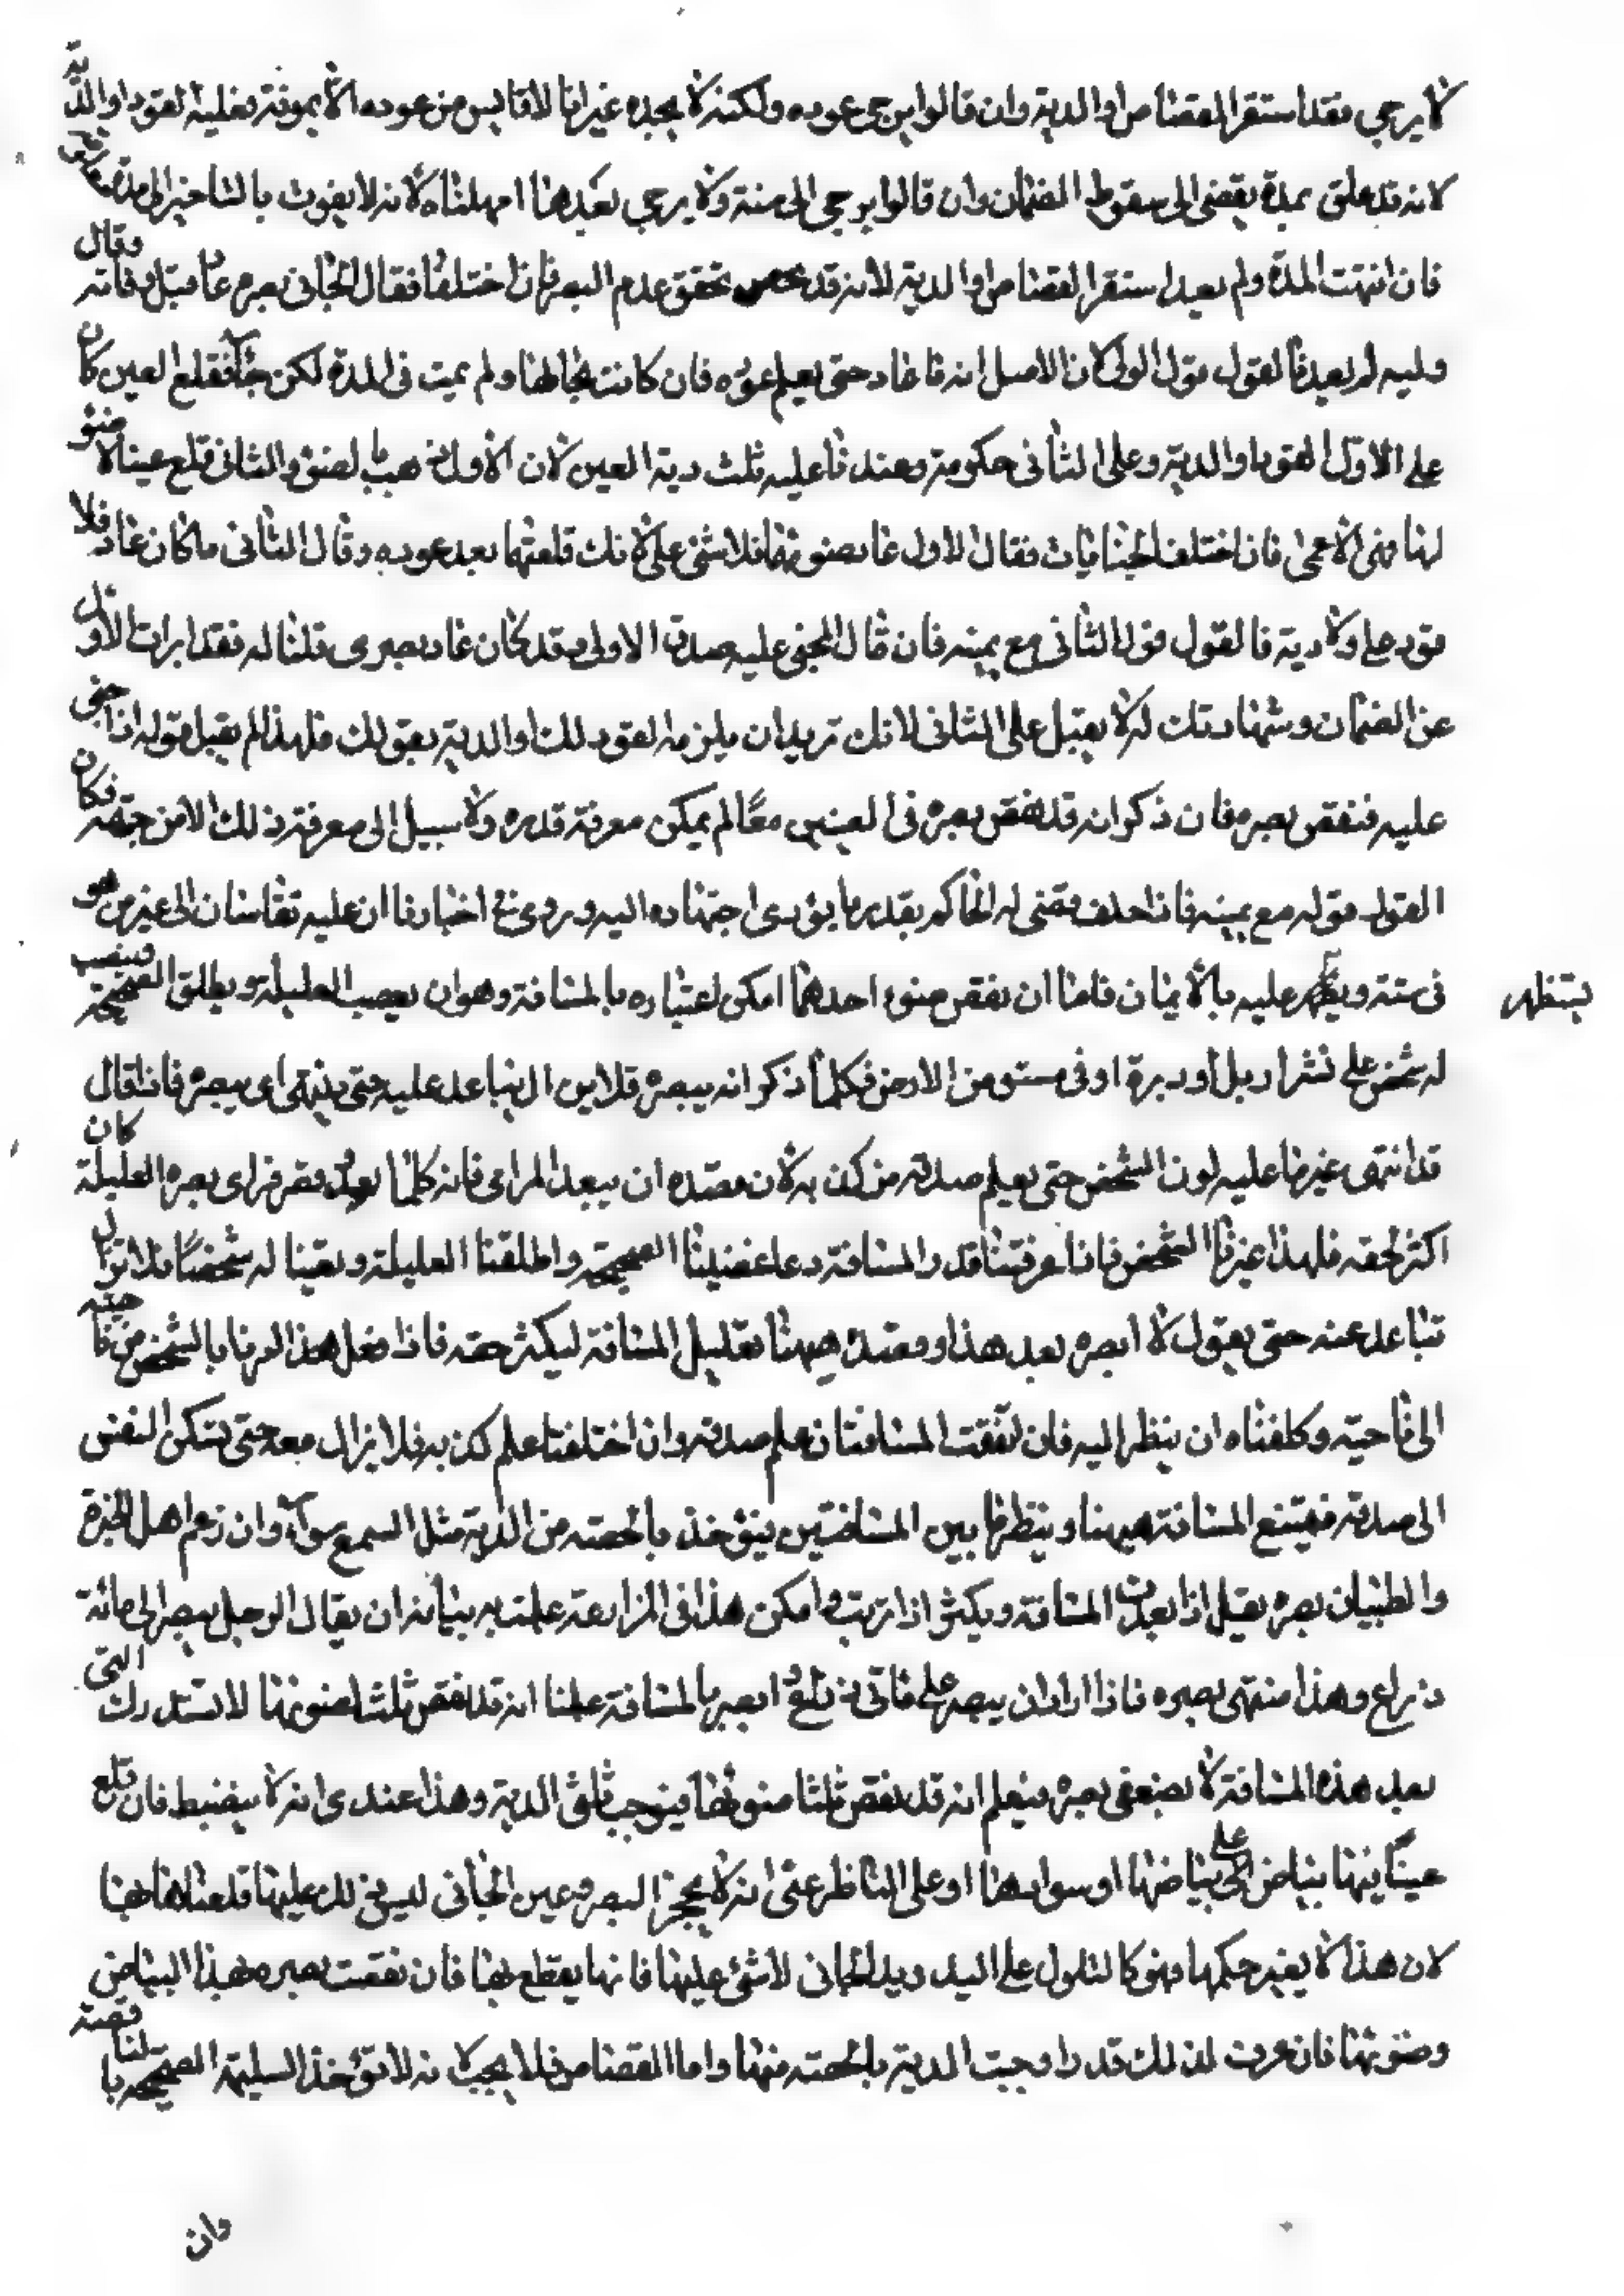 لا يرجى فقد استقر القصاص او الدية وان قالوا يرجى عوده ولكنه لا يحده غير انا لا نايس من عوده الا بموته فعليه القود او الدية
لانه قد علق بمدة يفضى الى سقوط الضمان وان قالوا يرجى الى سنة ولا يرجى بعدها امهلناه لانه لا يفوت بالتاخير الى مدة حق
فان انتهت المدة ولم يعد استقر القصاص او الدية لانه قد تحقق عدم البصر فان اختلفا فقال الجانى بصره عاد قبل وفاته وقال
وليه لم يعد فالقول قول الولى لان الاصل انه ما عاد حتى يعلم عوده فان كانت بحالها ولم يمت فى المدة لكن جاء فقلع العين كان
على الاول القود او الدية وعلى الثانى حكومة وعندنا عليه ثلث دية العين لان الاول ذهب بالضوء والثانى قلع عينا لا ضوء
لها فهى الاعمى فان اختلف الجنايات فقال الاول عاد ضوءها فلا شئ على لانك قلعتها بعد عوده وقال الثانى ما كان عاد فلا
قود على ولا دية فالقول قول الثانى مع يمينه فان قال المجنى عليه صدق الاول قد كان عاد بصرى قلنا له فقد ابرات الاول
عن الضمان وشهادتك له لا يقبل على الثانى لانك تريد ان يلزمه القود لك او الدية بقولك فلهذا لم يقبل قوله اذا جنى
عليه فنقص بصره فان ذكر انه قد نقص بصره فى العينين معًا لم يمكن معرفة قدره ولا سبيل الى معرفة ذلك الا من جهته فكان
القول قوله مع يمينه فاذا حلف قضى له الحاكم بقدر ما يؤدى اجتهاده اليه وروى فى اخبارنا ان عليه تقاسان الى عين من هو
فى سنه ويظهر عليه بالايمان فاما ان نقص ضوء احدهما امكن اعتباره بالمسافة وهو ان يعصب العليلة ويطلق الصحيحة وينصب
يستظهر
له شخص على نشز او تل او ربوة او فى مستو من الارض فكلما ذكر انه يبصره فلا يزال يباعد عليه حتى ينتهى اى يبصره فاذا قال
قد انتهى غيرنا عليه لون الشخص حتى يعلم صدقه من كذبه لان قصده ان يبعد المرائى فانه كلما بعد وقصر قراى بصره العليلة كان
اكثر لحقه فلهذا غيرنا الشخص فاذا عرفنا قدر المسافة ذرعا عصبنا الصحيحة واطلقنا العليلة ونصبنا له شخصًا فلا نزال
نباعد عنه حتى يقول لا ابصره بعد هذا وقصده ههنا تقليل المسافة ليكثر حقه فاذا فعل هذا ادرنا بالشخص من ناحية
الى ناحية وكلفناه ان ينظر اليه فان اتفقت المسافتان علم صدقه وان اختلفتا علم كذبه فلا يزال معه حتى يسكن النفس
الى صدقه فيتنع المسافة ههنا وينظر ما بين المسافتين فيؤخذ بالحصة من الدية مثل السمع سواء وان زعم اهل الخبرة
والطب ان بصره يقل اذا بعدت المسافة ويكثر اذا قربت وامكن هذا فى المزارعة علمت به بيانه ان يقال الرجل يبصر الى مائة
ذراع وهذا منتهى بصره فاذا اراد ان يبصر على مائتى ذراع ابصر بالمسافة علمنا انه قد نقص ثلثا ضوئها لا تستدرك التى
بعد هذه المسافة لا بضعفى بصره فيعلم انه قد نقص ثلثا ضوئها فيوجب ثلثى الدية وهذا عندى انه لا ينضبط فان قلع
عينًا فيها بياض على بياضها او سوادها او على الناظر غير انه لا يحجز البصر وعين الجانى ليس ذلك عليها قلعناها بها
لان هذا لا يغير حكمها فهو كالثلول على اليد ويد الجانى لا شئ عليها فانها يقطع بها فان نقصت بصره هذا البياض
وضوءها فان عرف لذلك قدر اوجبت الدية بالحصة منها واما القصاص فلا يجب لانه لا تؤخذ السليمة الصحيحة بالناقصة
وان